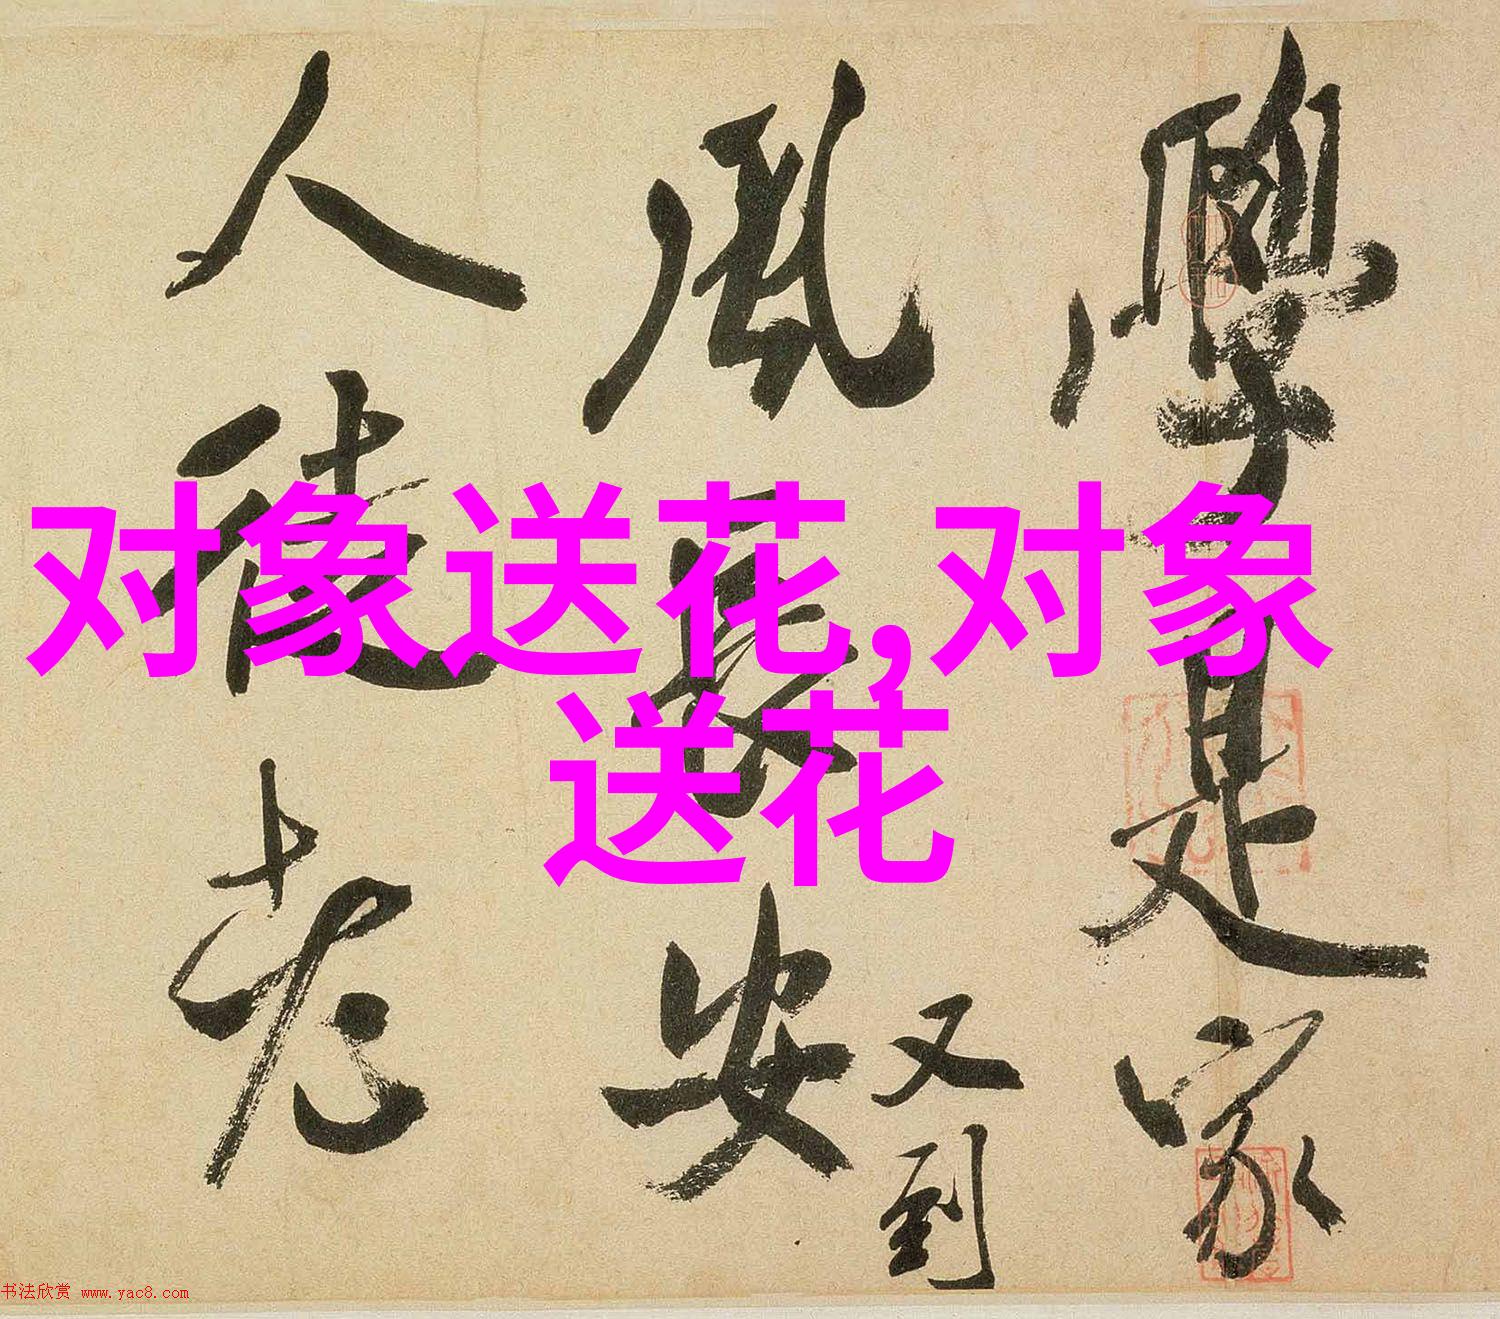 對象送花,对象
送花
學是家
風長安
又到
人徒老
书法欣赏 www.yac8.com